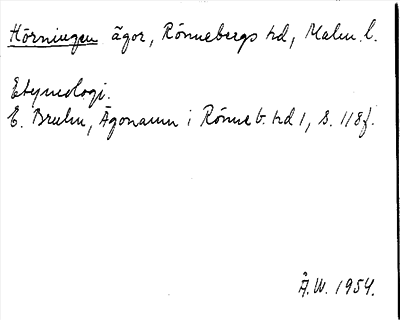 Hörningen ägor, Rönnebergs hd, Malm. l.
Etymologi.
E. Bruhn, Ägonamn i Rönneb. hd 1, s. 118f.
Ä.W. 1954.